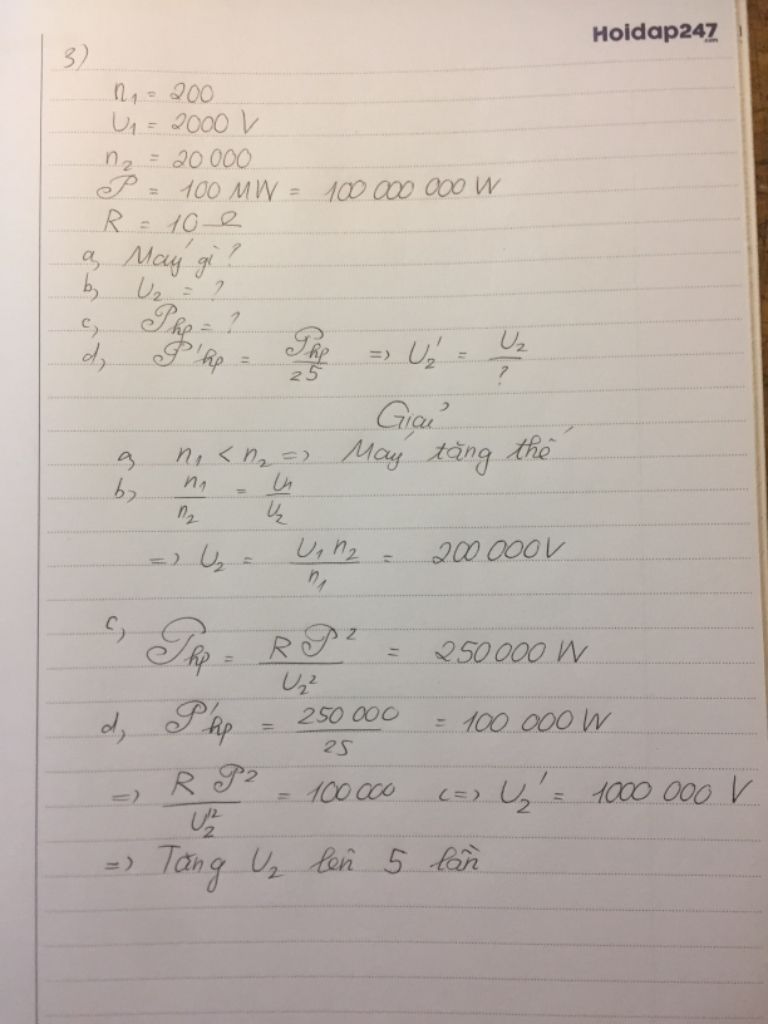 Hoidap247
.com
3)
n₁ = 200
U₁ = 2000 V
n₂ = 20 000
P = 100 MW = 100 000 000 W
R = 10 Ω
a, Máy gì ?
b, U₂ = ?
c, Php = ?
d, P'hp = Php/25 => U₂' = U₂/?
Giải
a, n₁ < n₂ => Máy tăng thế
b, n₁/n₂ = U₁/U₂
=> U₂ = U₁ n₂/n₁ = 200 000V
c, Php = R P²/U₂² = 250 000 W
d, P'hp = 250 000/25 = 100 000 W
=> R P²/U₂'² = 100 000 <=> U₂' = 1000 000 V
=> Tăng U₂ lên 5 lần